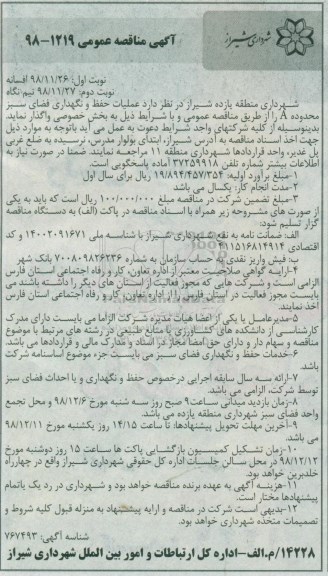 شهرداری شیراز
آگهی مناقصه عمومی ۱۲۱۹-۹۸
نوبت اول: ۹۸/۱۱/۲۶ افسانه
نوبت دوم: ۹۸/۱۱/۲۷ نیم‌نگاه
شهرداری منطقه یازده شیراز در نظر دارد عملیات حفظ و نگهداری فضای سبز
محدوده A را از طریق مناقصه عمومی و با شرایط ذیل به بخش خصوصی واگذار نماید.
بدینوسیله از کلیه شرکتهای واجد شرایط دعوت به عمل می آید باتوجه به موارد ذیل
جهت اخذ اسناد مناقصه به آدرس شیراز، ابتدای بلوار مدرس، نرسیده به ضلع غربی
پل غدیر، واحد قراردادها شهرداری منطقه ۱۱ مراجعه نمایند. ضمنا در صورت نیاز به
اطلاعات بیشتر شماره تلفن ۳۷۲۵۹۹۱۸ آماده پاسخگویی است.
۱-مبلغ برآورد اولیه: ۱۹/۸۹۴/۴۵۷/۳۵۴ ریال برای سال اول
۲-مدت انجام کار: یکسال می باشد
۳-مبلغ تضمین شرکت در مناقصه مبلغ ۱/۰۰۰/۰۰۰/۰۰۰ ریال است که باید به یکی
از صورت های مشروحه زیر همراه با اسناد مناقصه در پاکت (الف) به دستگاه مناقصه
گزار تسلیم شود:
الف: ضمانت نامه به نفع شهرداری شیراز با شناسه ملی ۱۴۰۰۲۰۹۱۶۷۱ و کد
اقتصادی ۴۱۱۵۱۶۸۱۴۹۱۴
ب: فیش واریز نقدی به حساب سازمان به شماره ۷۰۰۸۰۹۸۲۶۲۳۶ بانک شهر
۴-ارایه گواهی صلاحیت معتبر از اداره تعاون، کار و رفاه اجتماعی استان فارس
الزامی است و شرکت هایی که مجوز فعالیت از استان های دیگر را داشته باشند می
بایست مجوز فعالیت در استان فارس را از اداره تعاون، کار و رفاه اجتماعی فارس
اخذ نمایند.
۵-مدیرعامل یا یکی از اعضا هیات مدیره شرکت الزاما می بایست دارای مدرک
کارشناسی از دانشکده های کشاورزی یا منابع طبیعی در رشته های مرتبط با موضوع
مناقصه و سهام دار و دارای حق امضا مجاز در اسناد و مدارک مالی و قراردادها می باشد.
۶-خدمات حفظ و نگهداری فضای سبز می بایست جزء موضوع اساسنامه شرکت
باشد.
۷-ارائه سه سال سابقه اجرایی درخصوص حفظ و نگهداری و یا احداث فضای سبز
توسط شرکت، الزامی می باشد.
۸-زمان بازدید میدانی ساعت ۹ صبح روز سه شنبه مورخ ۹۸/۱۲/۶ و محل تجمع
واحد فضای سبز شهرداری منطقه یازده می باشد.
۹-آخرین مهلت تحویل پیشنهادها: تا ساعت ۱۴/۱۵ روز یکشنبه مورخ ۹۸/۱۲/۱۱
می باشد.
۱۰-زمان تشکیل کمیسیون بازگشایی پاکت ها ساعت ۱۵ روز دوشنبه مورخ
۹۸/۱۲/۱۲ در محل سالن جلسات اداره کل حقوقی شهرداری شیراز واقع در چهارراه
خلدبرین خواهد بود.
۱۱-هزینه آگهی به عهده برنده مناقصه خواهد بود و شهرداری در رد یک یاتمام
پیشنهادها مختار است.
۱۲-بدیهی است شرکت در مناقصه و ارایه پیشنهاد به منزله قبول کلیه شروط و
تصمیمات متخذه شهرداری خواهد بود.
شناسه آگهی: ۷۶۷۴۹۳
۱۴۲۲۸/م.الف-اداره کل ارتباطات و امور بین الملل شهرداری شیراز